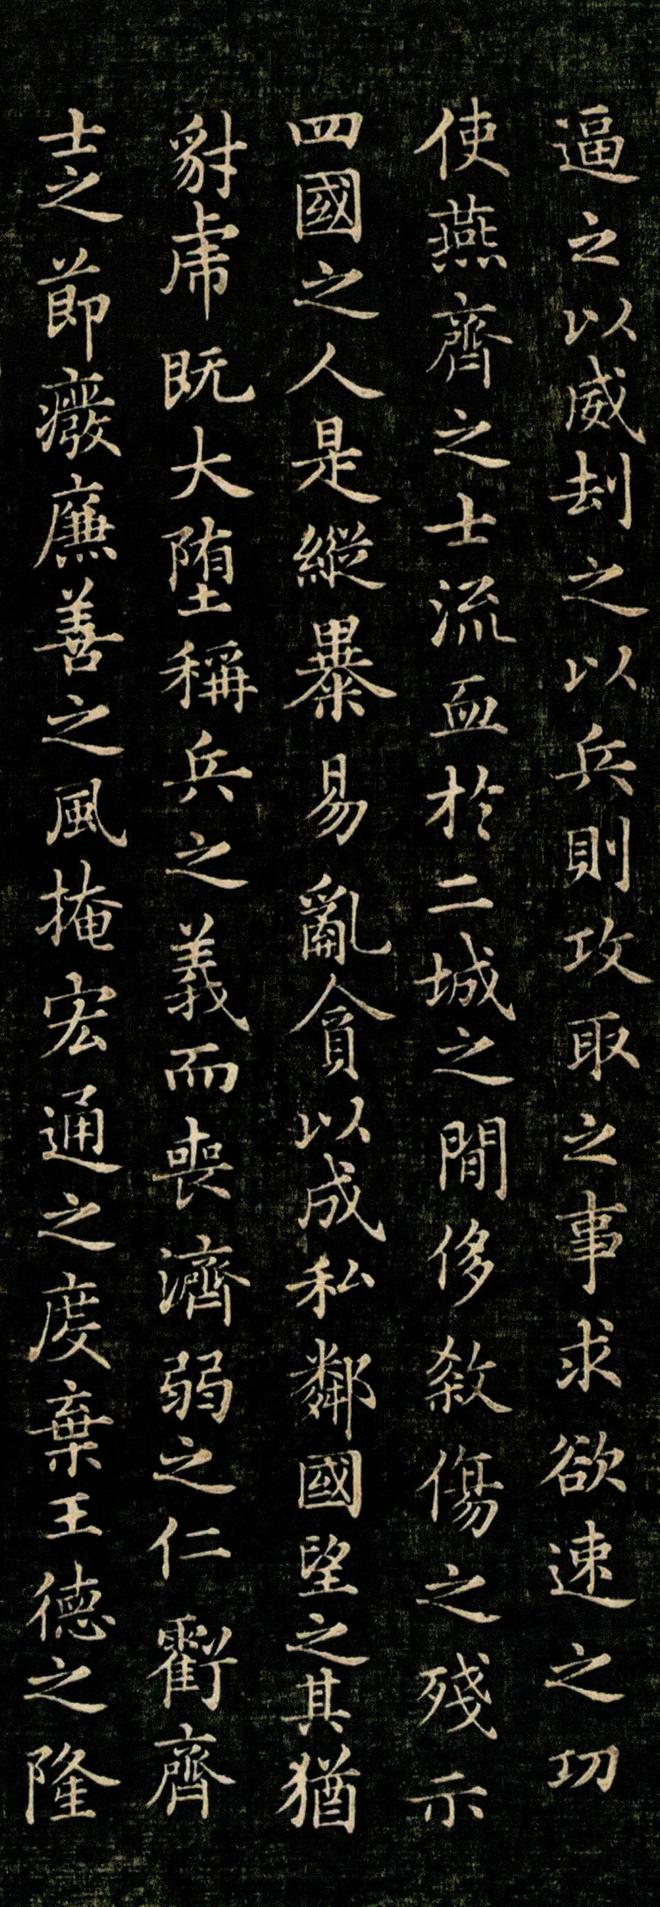 逼之以威刦之以兵則攻取之事求欲速之功
使燕齊之士流血於二城之間侈殺傷之殘示
四國之人是縱暴易亂貪以成私鄰國望之其猶
豺虎既大堕稱兵之義而喪濟弱之仁虧齊
士之節癈廉善之風掩宏通之度棄王德之隆